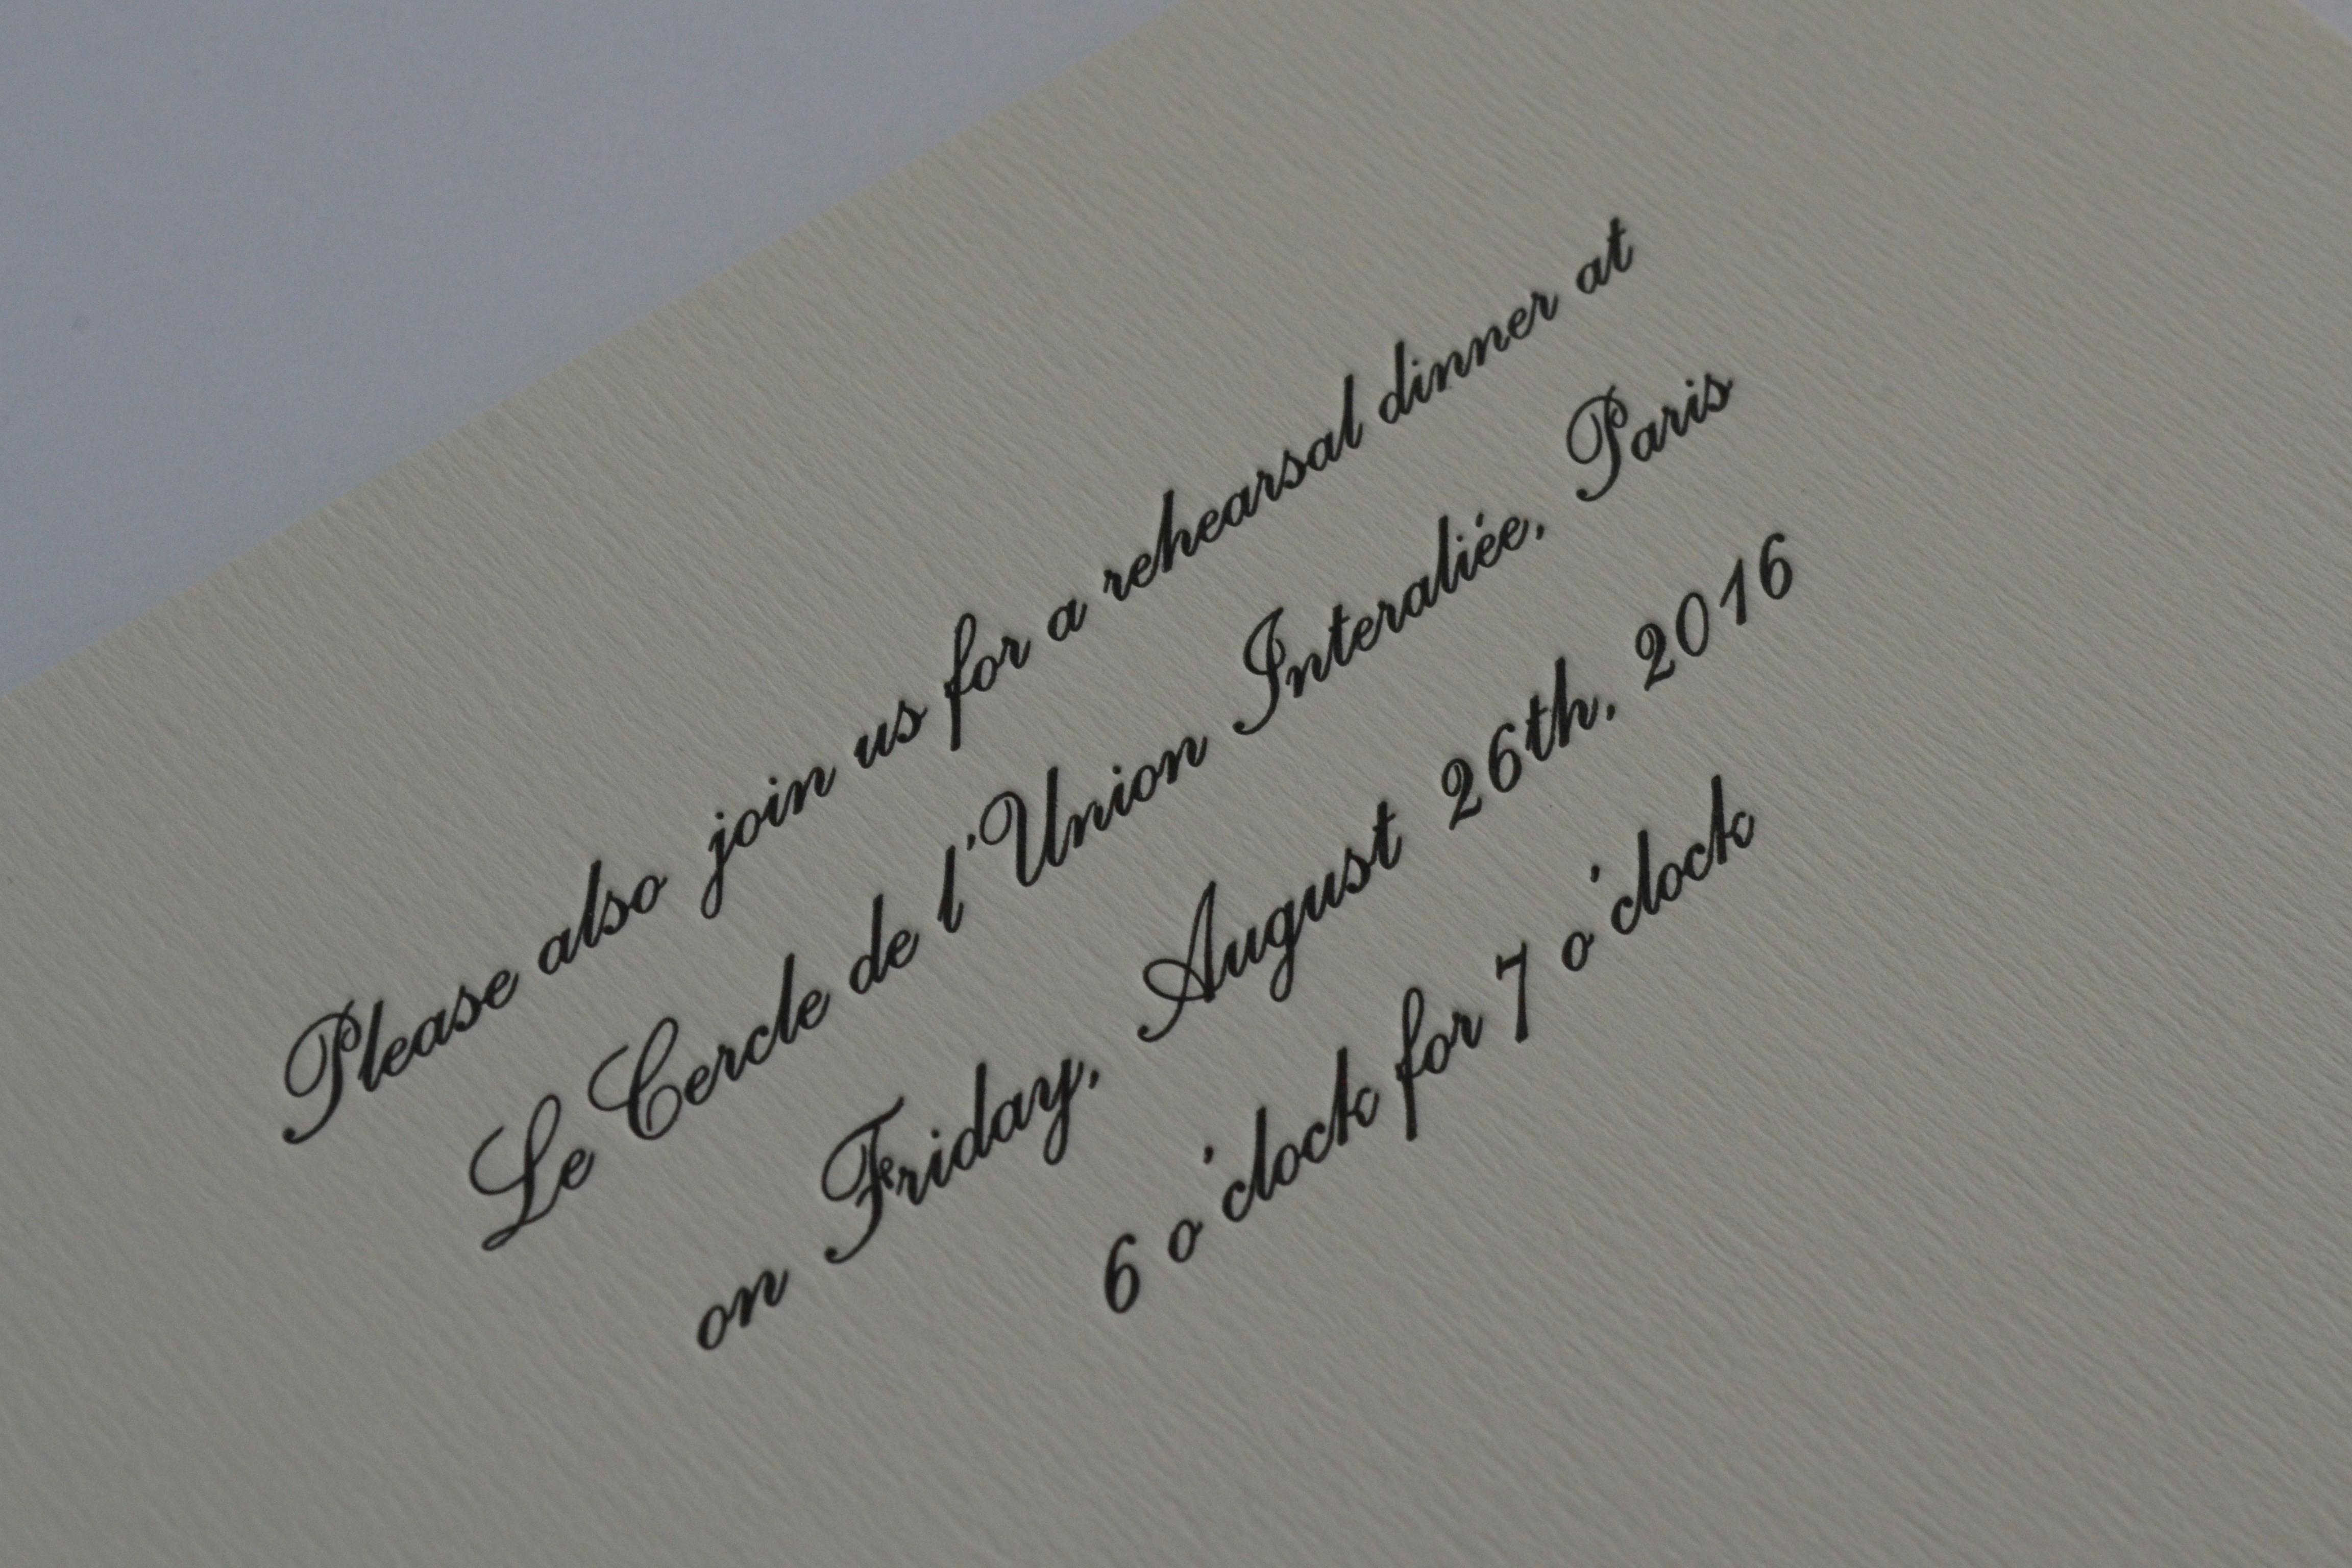 Please also join us for a rehearsal dinner at
Le Cercle de l'Union Interaliée, Paris
on Friday, August 26th, 2016
6 o'clock for 7 o'clock